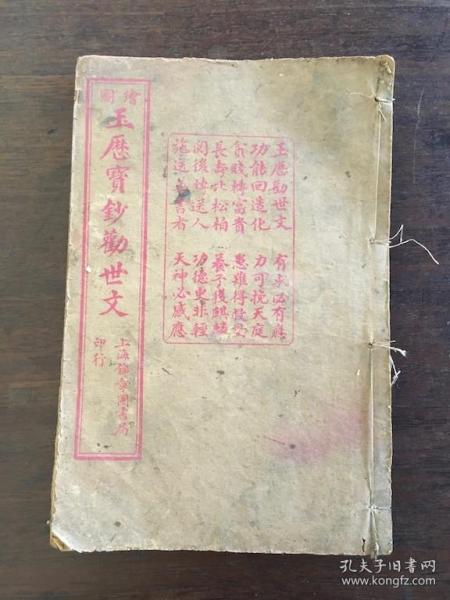 繪圖
玉歷寶鈔勸世文
上海錦章圖書局
印行
玉歷勸世文 有求必有應
功能回造化 力可挽天庭
貧賤轉富貴 患難得
長壽比松柏 養子獲麒麟
閱後快送人 功德更非輕
施送善書者 天神必感應
孔夫子旧书网
www.kongfz.com